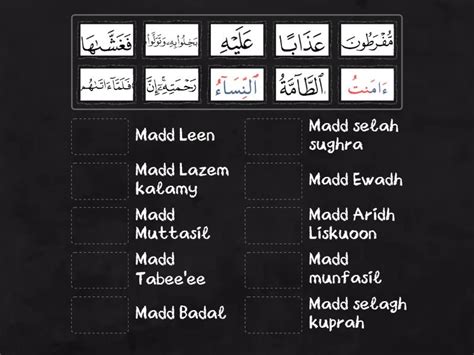 فَغَشَّىٰهَا
عَذَابًا
عَلَيْهِ
بَخِلُوا۟ بِهِۦ وَتَوَلَّوا۟
مُّفْرَطُونَ
فَلَمَّآ ءَاتَىٰهُم
رَحْمَتِهِۦٓ إِنَّ
ٱلنِّسَآءُ
ٱلطَّآمَّةُ
ءَامَنتُ
Madd Leen
Madd Lazem
kalamy
Madd
Muttasil
Madd
Tabee'ee
Madd Badal
Madd selah
sughra
Madd Ewadh
Madd Aridh
Liskuoon
Madd
munfasil
Madd selagh
kuprah